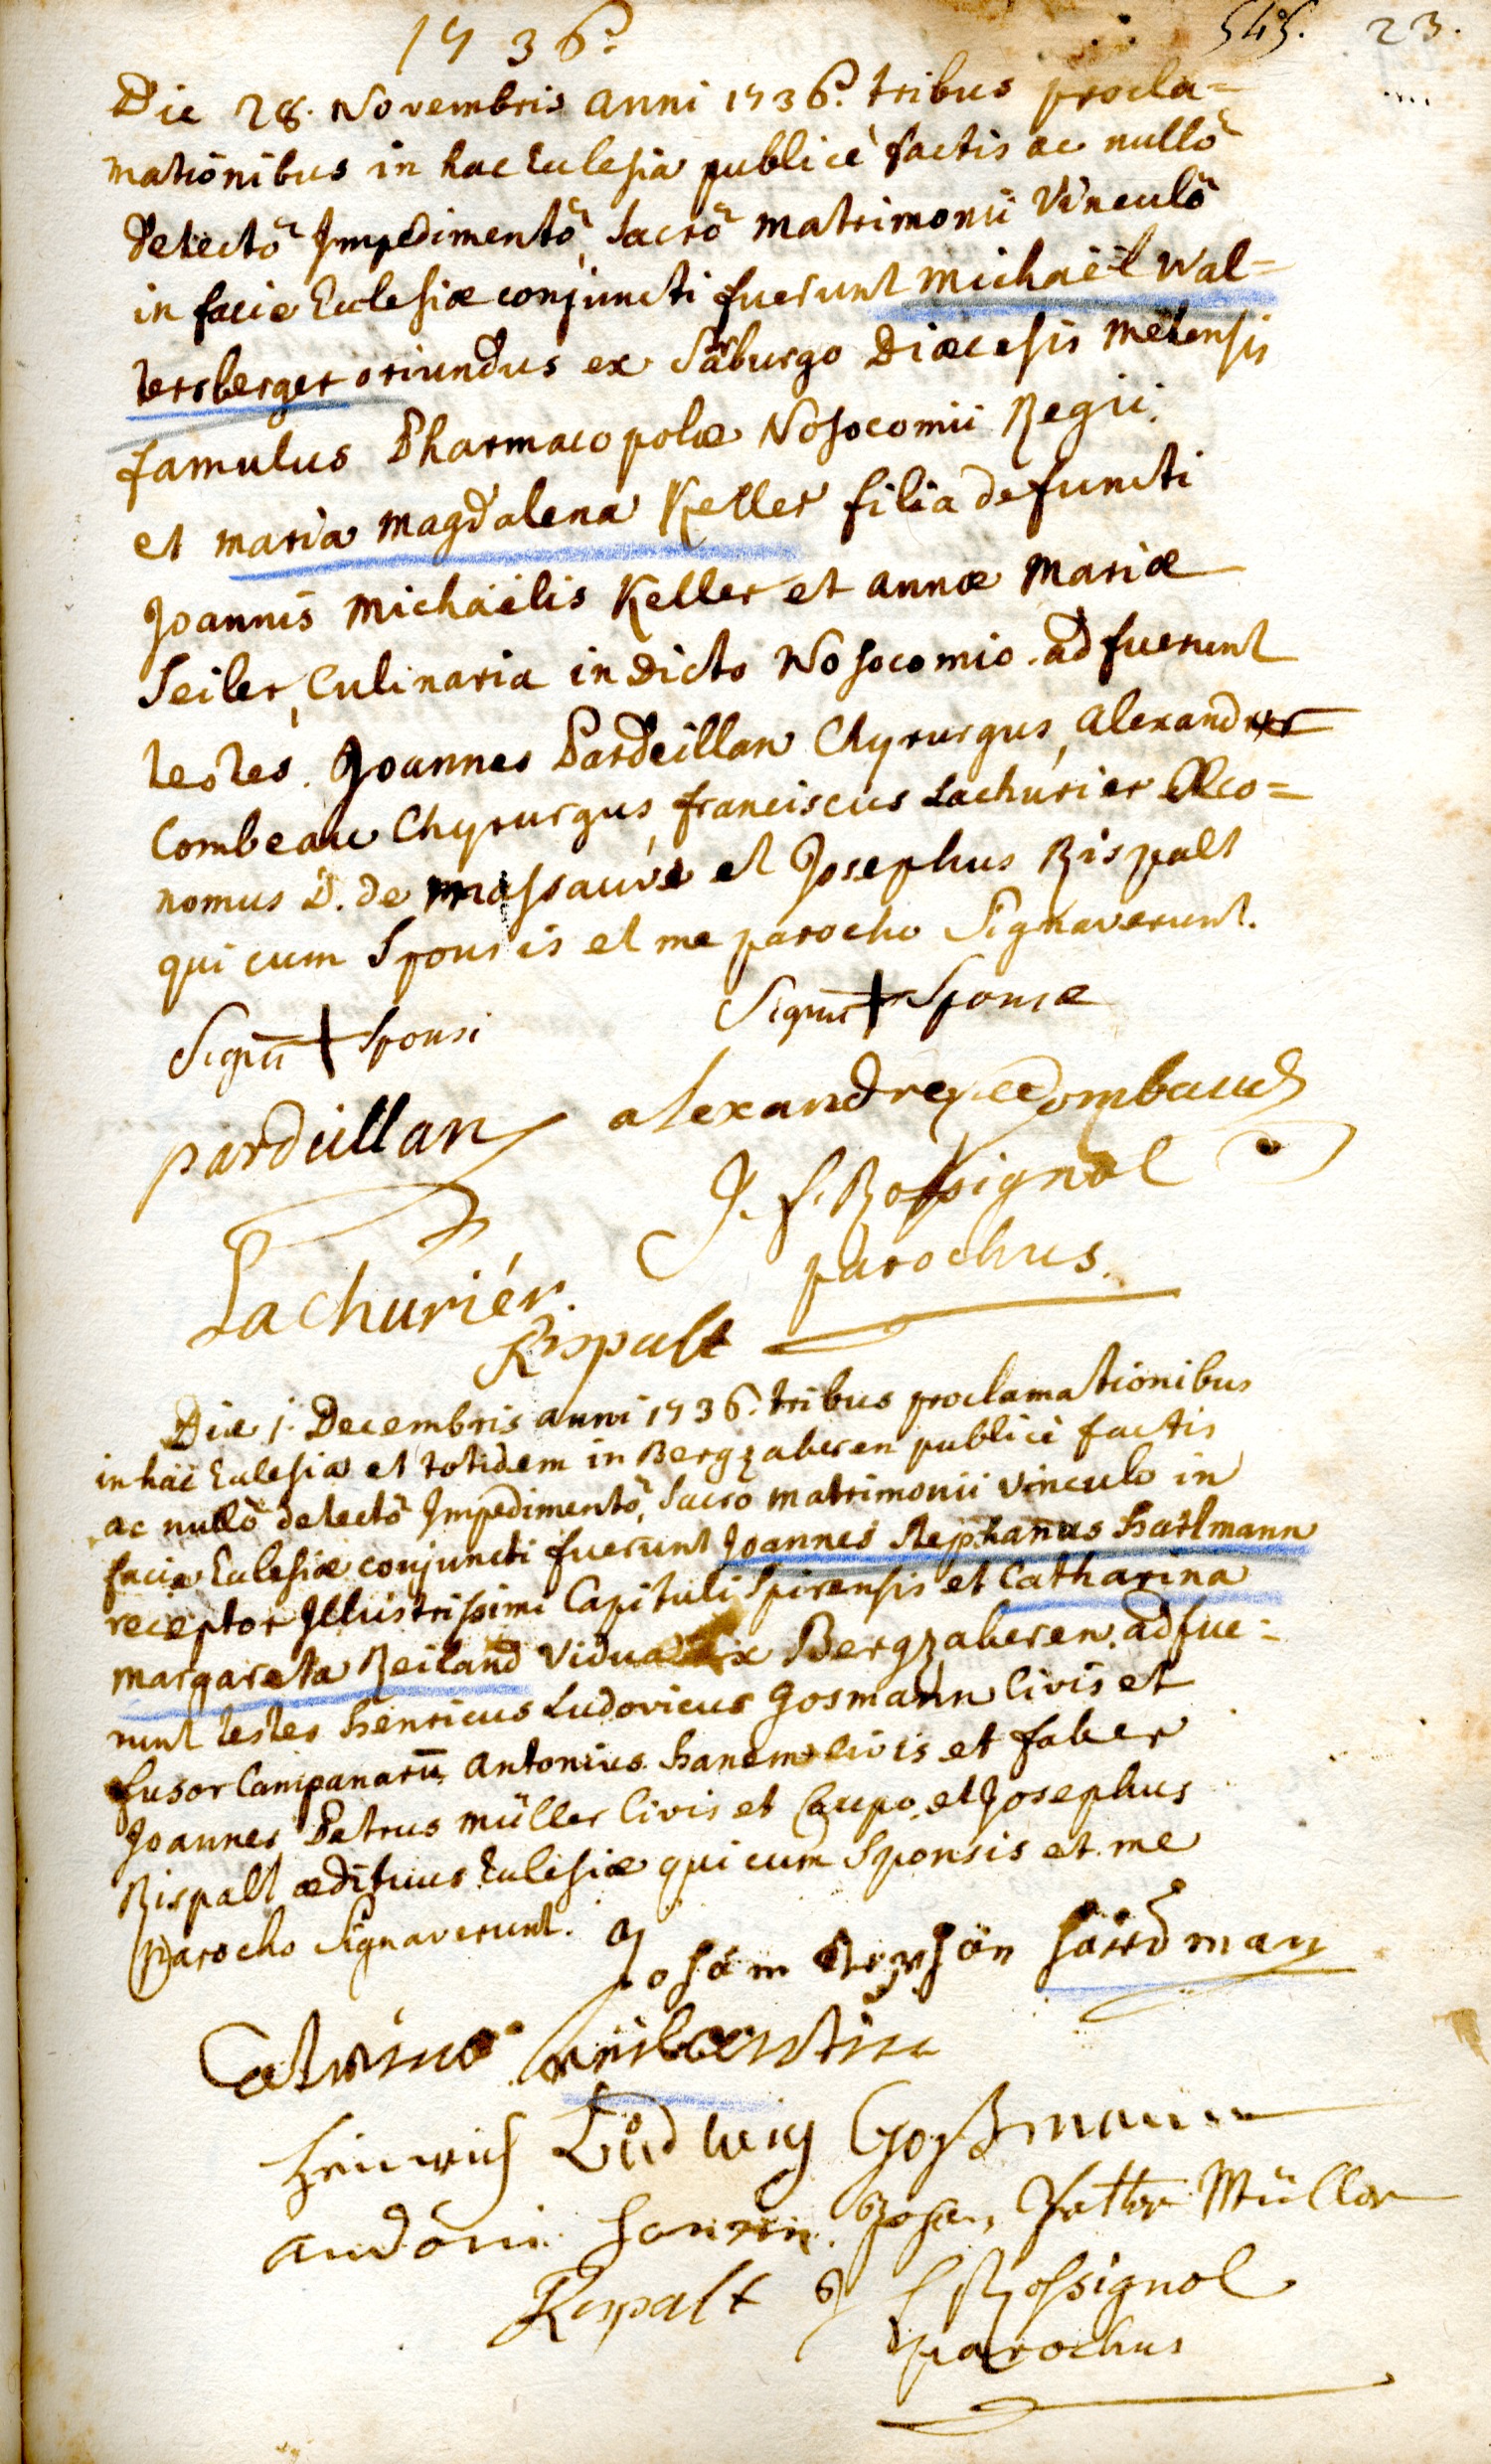 1736.
545. 23.
Die 28. Novembris anni 1736. tribus procla=
mationibus in hac Eclesia publicè factis ac nullô
detectô Impedimentô, Sacrô matrimonii Vinculô
in facie Eclesiæ conjuncti fuerunt Michaël Wal=
tersberger oriundus ex Sarburgo Diæcesis Metensis
famulus Pharmacopolæ Nosocomii Regii.
et maria magdalena Keller filia defuncti
Joannis Michaëlis Keller et annæ Mariæ
Seiler, Culinaria in dicto Nosocomio. adfuerunt
testes. Joannes Pardeillan Chyrurgus, alexander
Combeau Chyrurgus, franciscus Lachurier Œco=
nomus D. de Massauvé et Josephus Rispalt
qui cum Sponsis et me parocho Signaverunt.
Signū + Sponsi
Signū + Sponsæ
pardeillan
alexandre Combaud
J. f. Rossignol
parochus.
Lachuriér.
Rispalt
Die 1. Decembris anni 1736. tribus proclamationibus
in hac Eclesia et totidem in Bergzaberen publicè factis
ac nullô detectô Impedimentô, Sacro matrimonii vinculo in
facie Eclesiæ conjuncti fuerunt Joannes Stephanus Hartmann
receptor Illustrissimi Capituli Spirensis et Catharina
margareta Reiland Vidua ex Bergzaberen. adfue=
runt testes Henricus Ludovicus Gosmann Civis et
fusor Campanarū, Antonius Hanem civis et faber
Joannes Petrus Müller Civis et Caupo, et Josephus
Rispalt ædituus Eclesiæ qui cum Sponsis et me
parocho Signaverunt.
Johan Stephan Hardman
Catrina
Heinrich Ludwig Goßmann
andoni Johan Petter Müller
Rispalt J f Rossignol
parochus